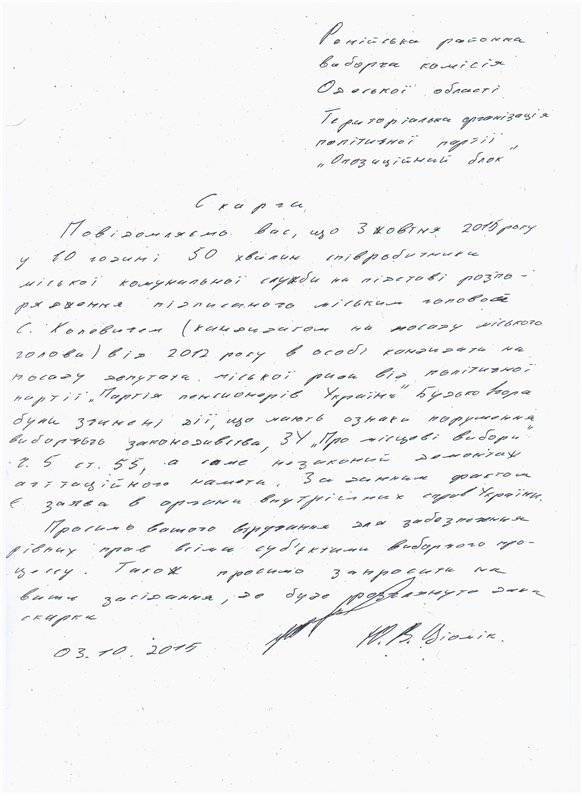 Ренійська районна
виборча комісія
Одеської області
Територіальна організація
політичної партії
„Опозиційний блок"
Скарга
Повідомляємо Вас, що 3 жовтня 2015 року
у 10 годині 50 хвилин співробітники
міської комунальної служби на підставі розпо-
рядження підписаного міським головою
С. Колевичем (кандидатом на посаду міського
голови) від 2012 року в особі кандидата на
посаду депутата міської ради від політичної
партії „Партія пенсіонерів України"
були вчинені дії, що мають ознаки порушення
виборчого законодавства, ЗУ „Про місцеві вибори"
ч. 5 ст. 55, а саме незаконий демонтаж
агітаційного намету. За даним фактом
є заява в органи внутрішніх справ України.
Просимо вашого втручання для забезпечення
рівних прав всіма суб'єктами виборчого про-
цессу. Також просимо запросити на
ваше засідання, де буде розглянуто дана
скарга
03.10.2015 Ю. В. Ціомік.